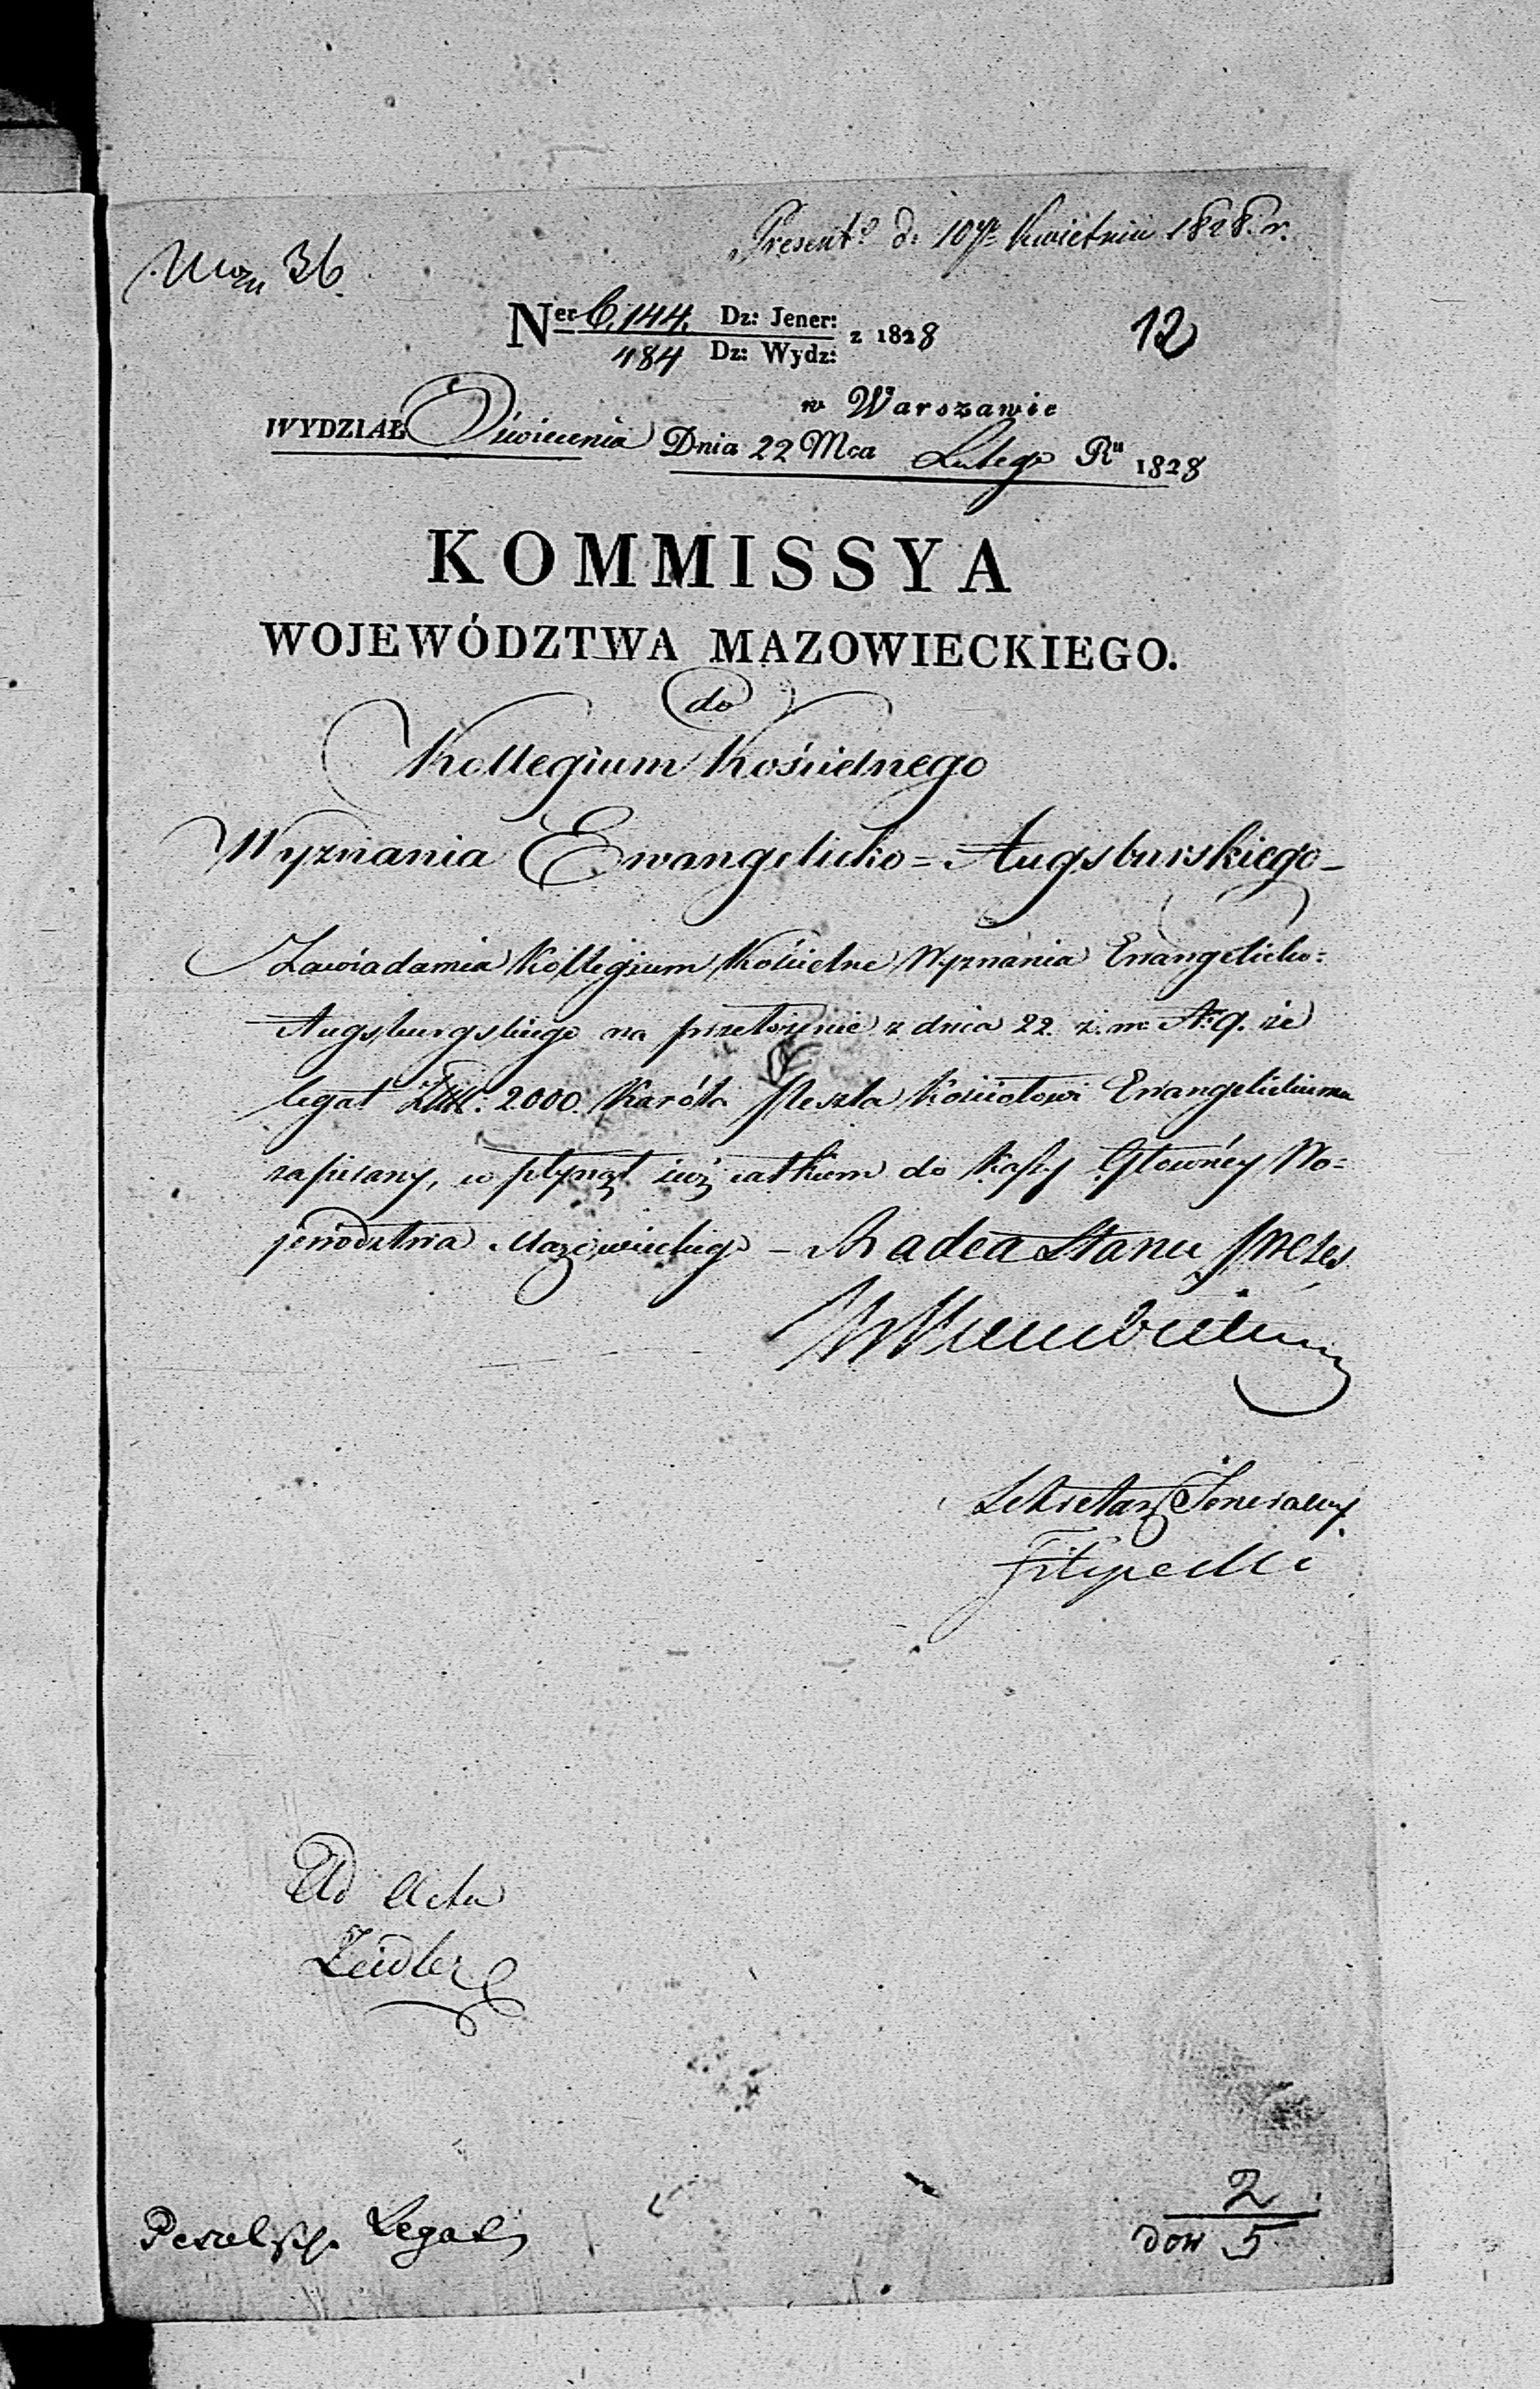 Present: d. 10go Kwietnia 1828. r.
36.
Ner 6,144. Dz: Jener: z 1828
184 Dz: Wydz:
12
w Warszawie
WYDZIAŁ Oświecenia Dnia 22 Mca Lutego Ru 1828
KOMMISSYA
WOJEWÓDZTWA MAZOWIECKIEGO.
do
Kollegium Kościelnego
Wyznania Ewangelicko=Augsburskiego–
Zawiadamia Kollegium Kościelne Wyznania Ewangelicko=
Augsburgskiego na przełożenie z dnia 22. z. m. N. 9. że
legat Złł. 2000. Karóla Peszla Kościołowi Ewangelickiemu
zapisany, w płynął iuż całkiem do Kassy Głównéy Wo=
jewództwa Mazowieckiego – Radca Stanu Prezes
Sekretarz Jeneralny.
Filipecki
Ad Acta
Zeidler
Legat
2
dow 5